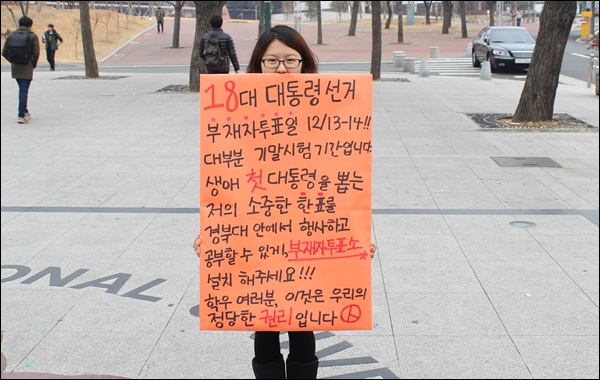 18대 대통령선거
부재자투표일 12/13-14!!
대부분 기말시험 기간입니다.
생애 첫 대통령을 뽑는
저의 소중한 한표를
경북대 안에서 행사하고
공부할 수 있게, 부재자투표소
설치 해주세요!!!
학우 여러분, 이것은 우리의
정당한 권리입니다
ONAL